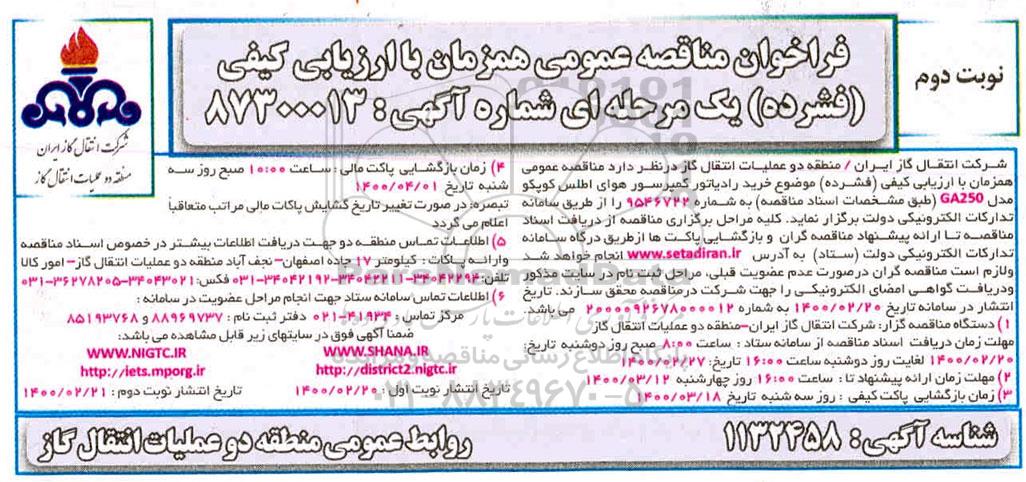 نوبت دوم
فراخوان مناقصه عمومی همزمان با ارزیابی کیفی
(فشرده) یک مرحله ای شماره آگهی: ۸۷۳۰۰۰۱۳
شرکت انتقال گاز ایران
منطقه دو عملیات انتقال گاز
شرکت انتقـال گاز ایـران / منطقه دو عملیات انتقال گاز در نظر دارد مناقصه عمومی
همزمان با ارزیابی کیفی (فشرده) موضوع خرید رادیاتور کمپرسور هوای اطلس کوپکو
مدل GA250 (طبق مشخصات اسناد مناقصه) به شماره ۹۵۴۶۷۲۲ را از طریق سامانه
تدارکات الکترونیکی دولت برگزار نماید. کلیه مراحل برگزاری مناقصه از دریافت اسناد
مناقصه تا ارائه پیشنهاد مناقصه گران و بازگشایی پاکت ها از طریق درگاه سامانه
تدارکات الکترونیکی دولت (ستاد) به آدرس www.setadiran.ir انجام خواهد شد
ولازم است مناقصه گران درصورت عدم عضویت قبلی، مراحل ثبت نام در سایت مذکور
ودریافت گواهی امضای الکترونیکی را جهت شرکت درمناقصه محقق سازند. تاریخ
انتشار در سامانه تاریخ ۱۴۰۰/۰۲/۲۰ به شماره ۲۰۰۰۰۹۲۶۷۸۰۰۰۰۱۲ می باشد.
۱) دستگاه مناقصه گزار: شرکت انتقال گاز ایران-منطقه دو عملیات انتقال گاز
مهلت زمان دریافت اسناد مناقصه از سامانه ستاد : ساعت ۸:۰۰ صبح روز دوشنبه تاریخ:
۱۴۰۰/۰۲/۲۰ لغایت روز دوشنبه ساعت ۱۶:۰۰ تاریخ: ۱۴۰۰/۰۲/۲۷
۲) مهلت زمان ارائه پیشنهاد تا : ساعت ۱۶:۰۰ روز چهارشنبه ۱۴۰۰/۰۳/۱۲
۳) زمان بازگشایی پاکت کیفی : روز سه شنبه تاریخ ۱۴۰۰/۰۳/۱۸
۴) زمان بازگشایی پاکت مالی : ساعت ۱۰:۰۰ صبح روز سه
شنبه تاریخ ۱۴۰۰/۰۴/۰۱
تبصره: در صورت تغییر تاریخ گشایش پاکات مالی مراتب متعاقباً
اعلام می گردد
۵) اطلاعات تماس منطقه دو جهت دریافت اطلاعات بیشتر در خصوص اسناد مناقصه
وارائه پاکات : کیلومتر ۱۷ جاده اصفهان- نجف آباد منطقه دو عملیات انتقال گاز- امور کالا
تلفن: ۳۴۰۴۲۲۹۴-۳۴۰۴۲۲۴۰-۳۴۰۴۲۱۹۲-۰۳۱ فکس: ۳۴۰۴۳۰۲۱-۳۶۲۷۸۲۰۵-۰۳۱
۶) اطلاعات تماس سامانه ستاد جهت انجام مراحل عضویت در سامانه :
مرکز تماس : ۴۱۹۳۴-۰۲۱ دفتر ثبت نام : ۸۸۹۶۹۷۳۷ و ۸۵۱۹۳۷۶۸
ضمنا آگهی فوق در سایتهای زیر قابل مشاهده می باشد:
WWW.SHANA.IR WWW.NIGTC.IR
http://district2.nigtc.ir http://iets.mporg.ir
تاریخ انتشار نوبت اول : ۱۴۰۰/۰۲/۲۰ تاریخ انتشار نوبت دوم : ۱۴۰۰/۰۲/۲۱
شناسه آگهی: ۱۱۳۲۴۵۸
روابط عمومی منطقه دو عملیات انتقال گاز
ParsNamadData
پایگاه اطلاع رسانی مناقصه و مزایده
۰۲۱-۸۸۳۴۹۶۷۰-۵